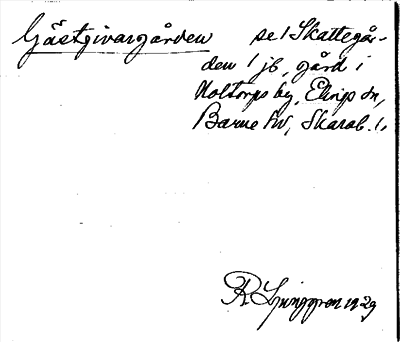 Gästgivargården se 1 Skattegår-
den 1 jb, gård i
Holtorps by, Elings sn,
Barne hd, Skarab. l.
R Ljunggren 1929